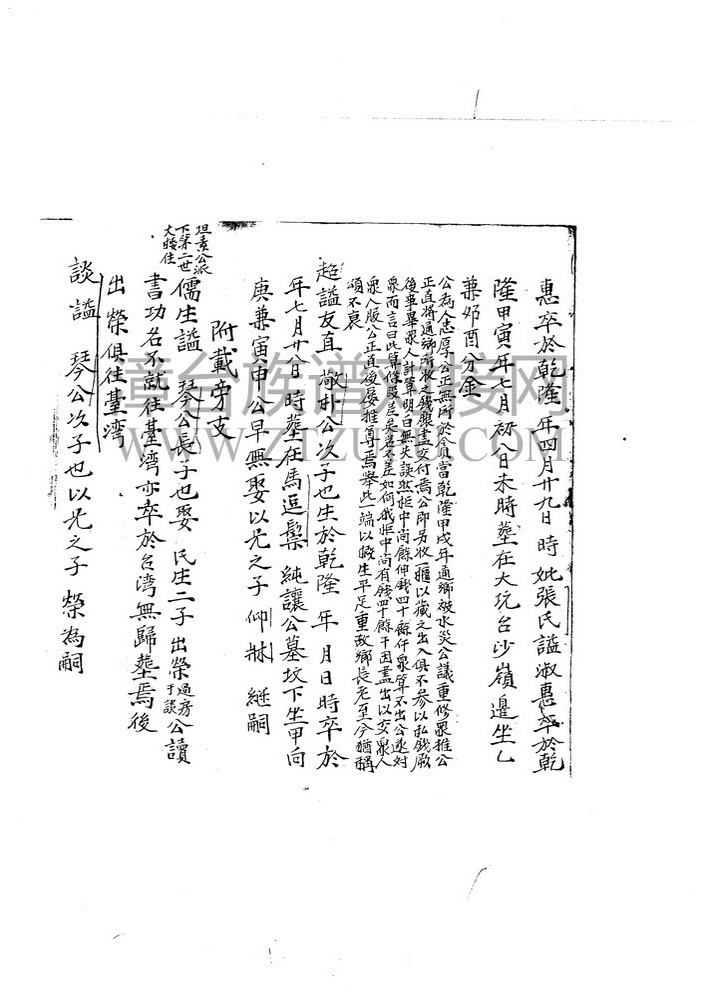 惠卒於乾隆 年四月廿九日 時妣張氏謚淑惠卒於乾
隆甲寅年七月初八日未時葬在大坑台沙嶺邊坐乙
兼卯酉分金
公為人忠厚公正無所於令員當乾隆甲戌年通鄉被水災公議重修眾推公
正直將通鄉所收之錢銀盡交付焉公即另收一櫃以藏之出入俱不參以私錢厥
後事畢眾人計算明白無失誤然柜中尚餘伸錢四十餘仟眾算不出公遂對
眾而言曰此算條股豈吴若不差如何我柜中尚有錢四十餘千因盡出以交眾人
眾人服公正直後屡推尊焉舉此一端以概生平足重故鄉長老至今猶稱
頌不衰
超謚友直 敬朴公次子也生於乾隆 年 月日時卒於
年七月廿八日 時葬在馬逗鬃 純讓公墓坟下坐甲向
庚兼寅申 公早無娶以光之子 仰 継嗣
附載旁支
坦素公派
下第二世
大 住
儒生謚 琴公長子也娶 氏生二子 出榮過房于談 公讀
書功名不就往臺灣亦卒於台湾無歸葬焉後
出 榮俱往臺湾
談謚 琴公次子也以光之子 榮為嗣
童台族谱对接网
WWW.ZTZUPU.COM